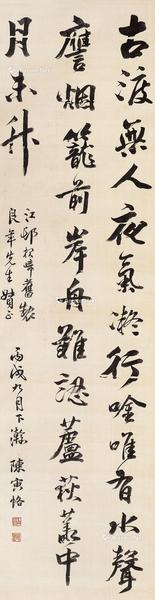 古渡無人夜氣凝行唫唯有水聲
譍烟籠前岸舟難認蘆荻叢中
月未升
江邨抒嘯舊製
良年先生贊正
丙戌九月下澣 陳寅恪